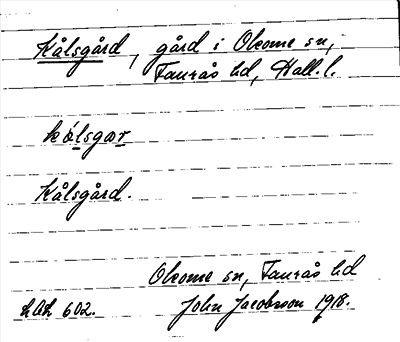 Kålsgård, gård i Okome sn,
Faurås hd, Hall. l.
kɷ́lsgɑr
Kålsgård.
Okome sn, Faurås hd
hbk 602. John Jacobsson 1918.